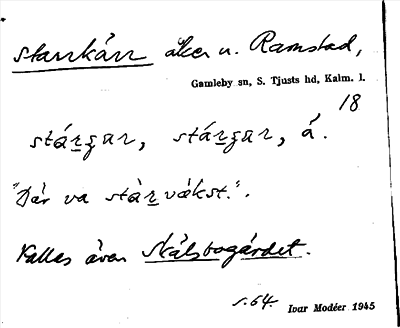 starrkärr åker u. Ramstad,
Gamleby sn, S. Tjusts hd, Kalm. l.
18
"Där va stàr växt.".
Kallas även Skälsbogärdet.
s. 64. Ivar Modéer 1945